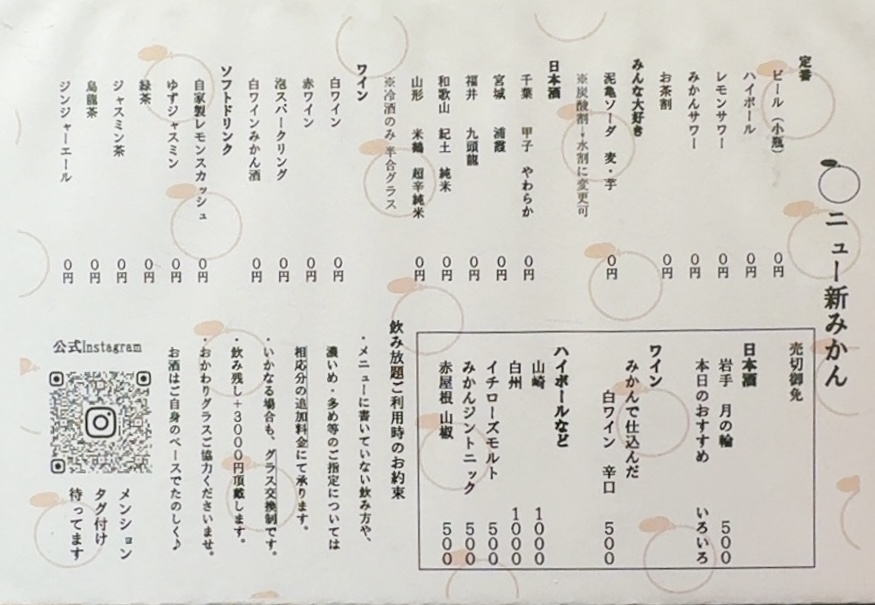 ニュー新みかん
定番
ビール（小瓶） 0円
ハイボール 0円
レモンサワー 0円
みかんサワー 0円
お茶割 0円
みんな大好き
泥亀ソーダ 麦・芋 0円
※炭酸割→水割に変更可
日本酒
千葉 甲子 やわらか 0円
宮城 浦霞 0円
福井 九頭龍 0円
和歌山 紀土 純米 0円
山形 米鶴 超辛純米 0円
※冷酒のみ 半合グラス
ワイン
白ワイン 0円
赤ワイン 0円
泡スパークリング 0円
白ワインみかん酒 0円
ソフトドリンク
自家製レモンスカッシュ 0円
ゆずジャスミン 0円
緑茶 0円
ジャスミン茶 0円
烏龍茶 0円
ジンジャーエール 0円
売切御免
日本酒
岩手 月の輪 500
本日のおすすめ いろいろ
ワイン
みかんで仕込んだ
白ワイン 辛口 500
ハイボールなど
山崎 1000
白州 1000
イチローズモルト 500
みかんジントニック 500
赤屋根 山椒 500
飲み放題ご利用時のお約束
・メニューに書いていない飲み方や、
濃いめ・多め等のご指定については
相応分の追加料金にて承ります。
・いかなる場合も、グラス交換制です。
・飲み残し＋3000円頂戴します。
・おかわりグラスご協力くださいませ。
お酒はご自身のペースでたのしく♪
公式Instagram
メンション
タグ付け
待ってます